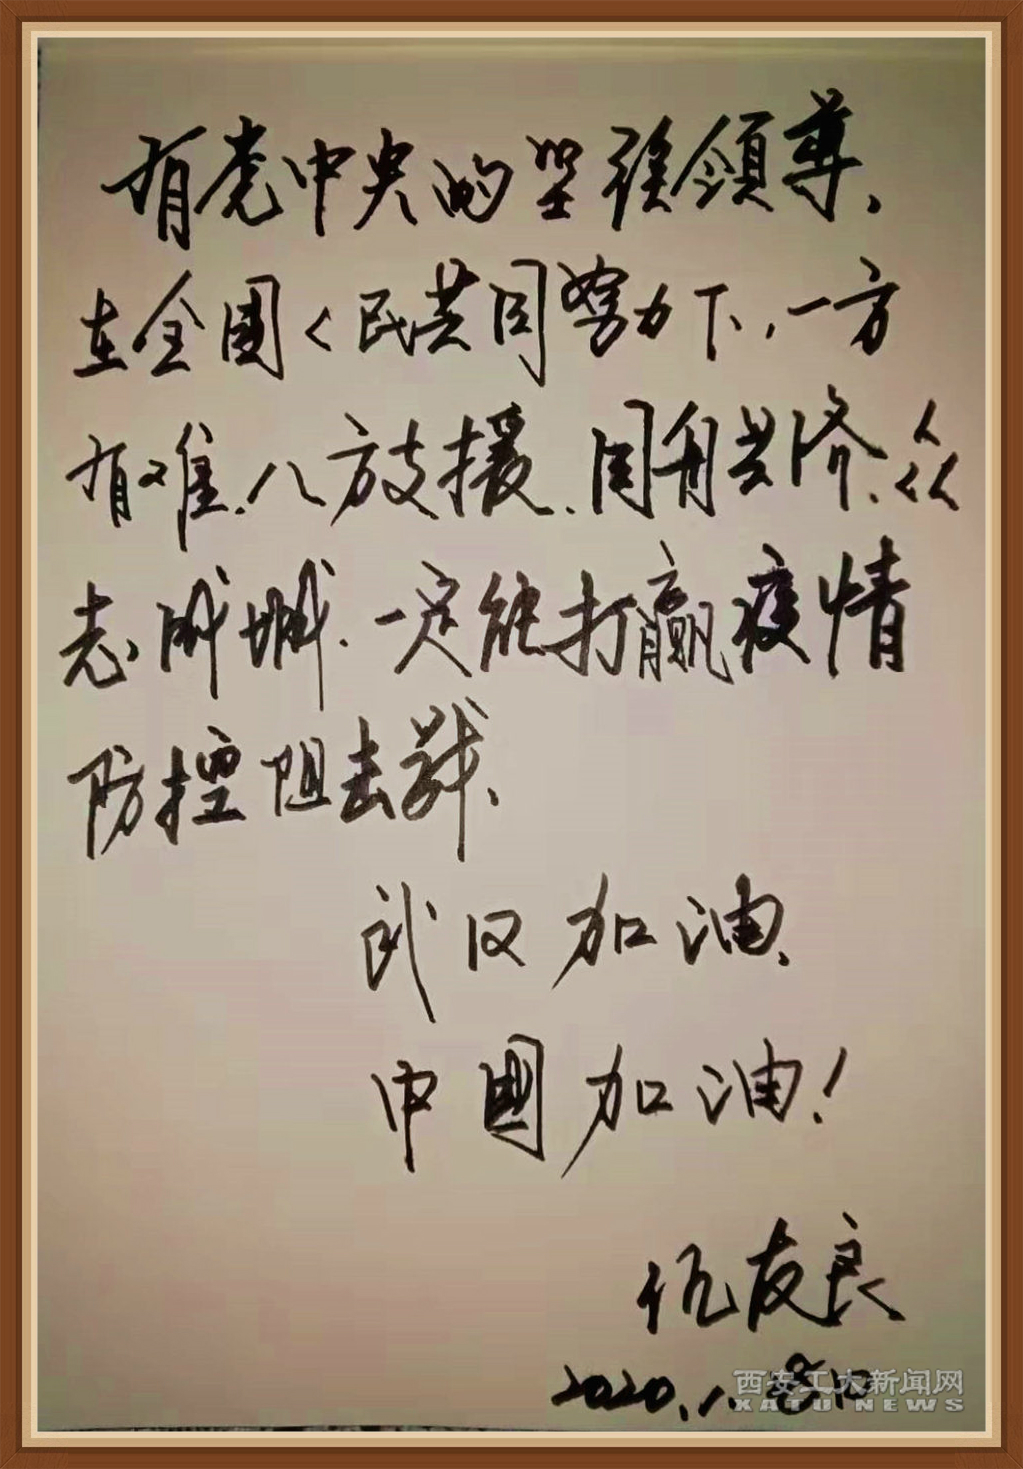 有党中央的坚强领导、
在全国人民共同努力下,一方
有难、八方支援、同舟共济、众
志成城、一定能打赢疫情
防控阻击战、
武汉加油、
中国加油!
仇友良
2020.1.
西安工大新闻网
XATU NEWS